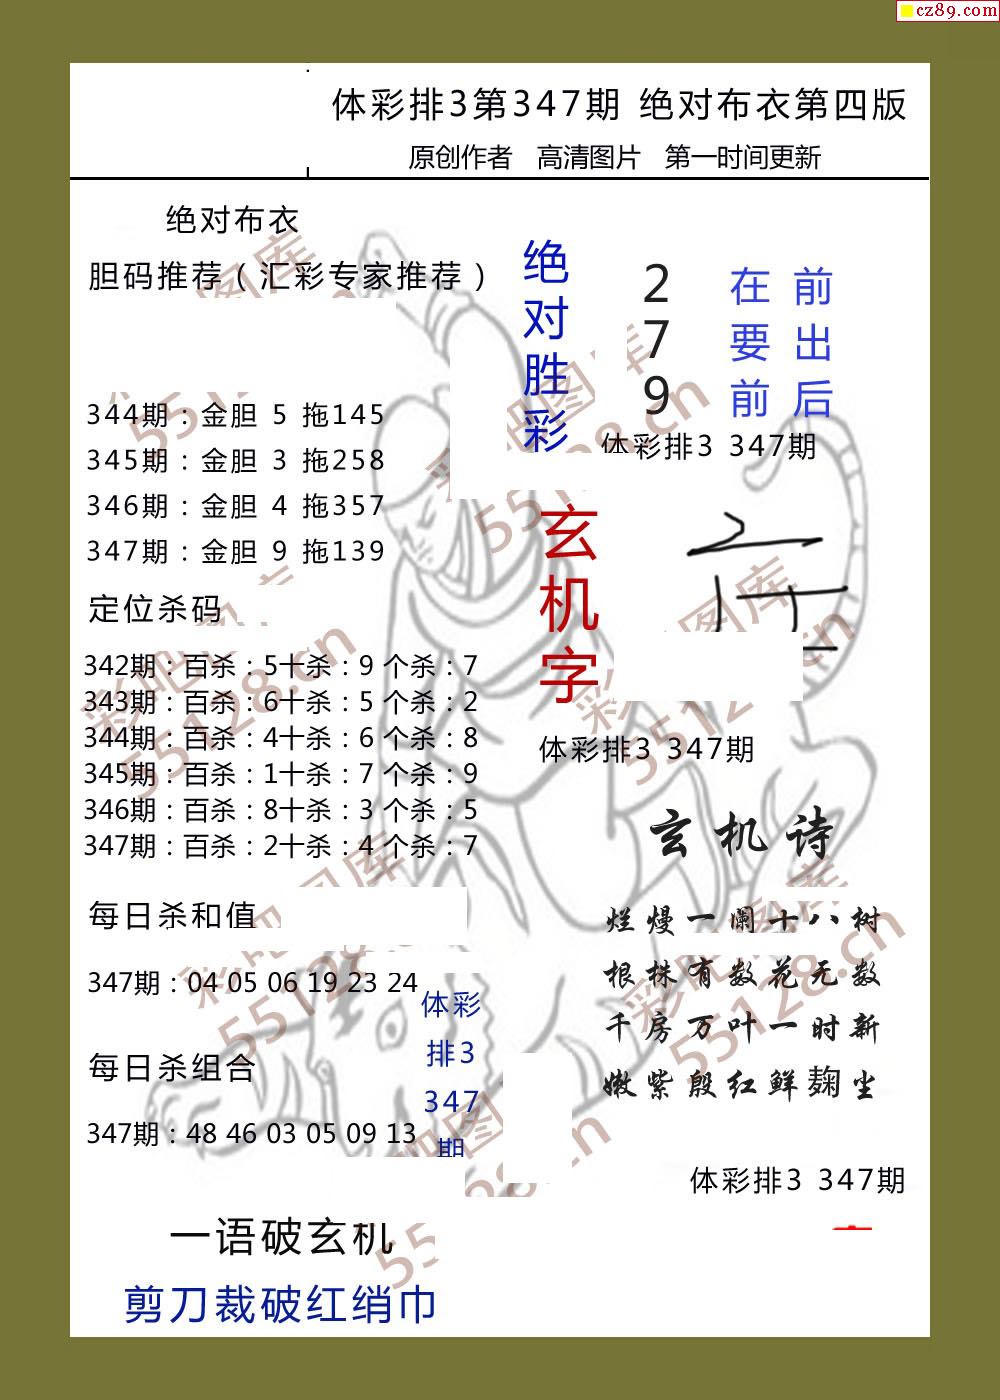 cz89.com
体彩排3第347期 绝对布衣第四版
原创作者 高清图片 第一时间更新
绝对布衣
胆码推荐（汇彩专家推荐）
344期：金胆 5 拖145
345期：金胆 3 拖258
346期：金胆 4 拖357
347期：金胆 9 拖139
定位杀码
342期：百杀：5十杀：9 个杀：7
343期：百杀：6十杀：5 个杀：2
344期：百杀：4十杀：6 个杀：8
345期：百杀：1十杀：7 个杀：9
346期：百杀：8十杀：3 个杀：5
347期：百杀：2十杀：4 个杀：7
每日杀和值
347期：04 05 06 19 23 24
每日杀组合
347期：48 46 03 05 09 13
体彩
排3
347
期
一语破玄机
剪刀裁破红绡巾
绝对胜彩
279
在要前
前出后
体彩排3 347期
玄机字
体彩排3 347期
玄机诗
烂熳一阑十八树
根株有数花无数
千房万叶一时新
嫩紫殷红鲜麹尘
体彩排3 347期
彩吧图库
55128.cn